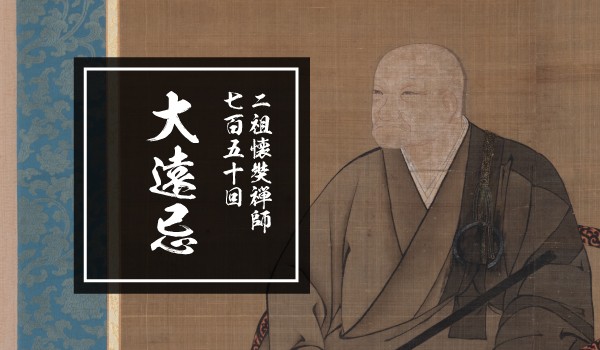 二祖懐奘禅師
七百五十回
大遠忌